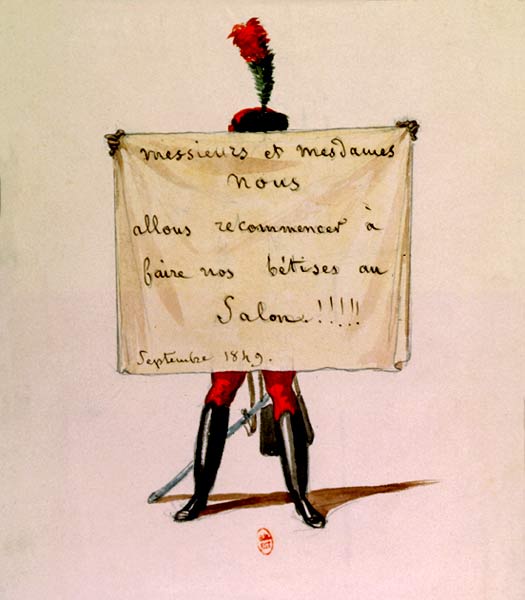 Messieurs et Mesdames
Nous
allons recommencer à
faire nos bêtises au
Salon.!!!!!
Septembre 1849.